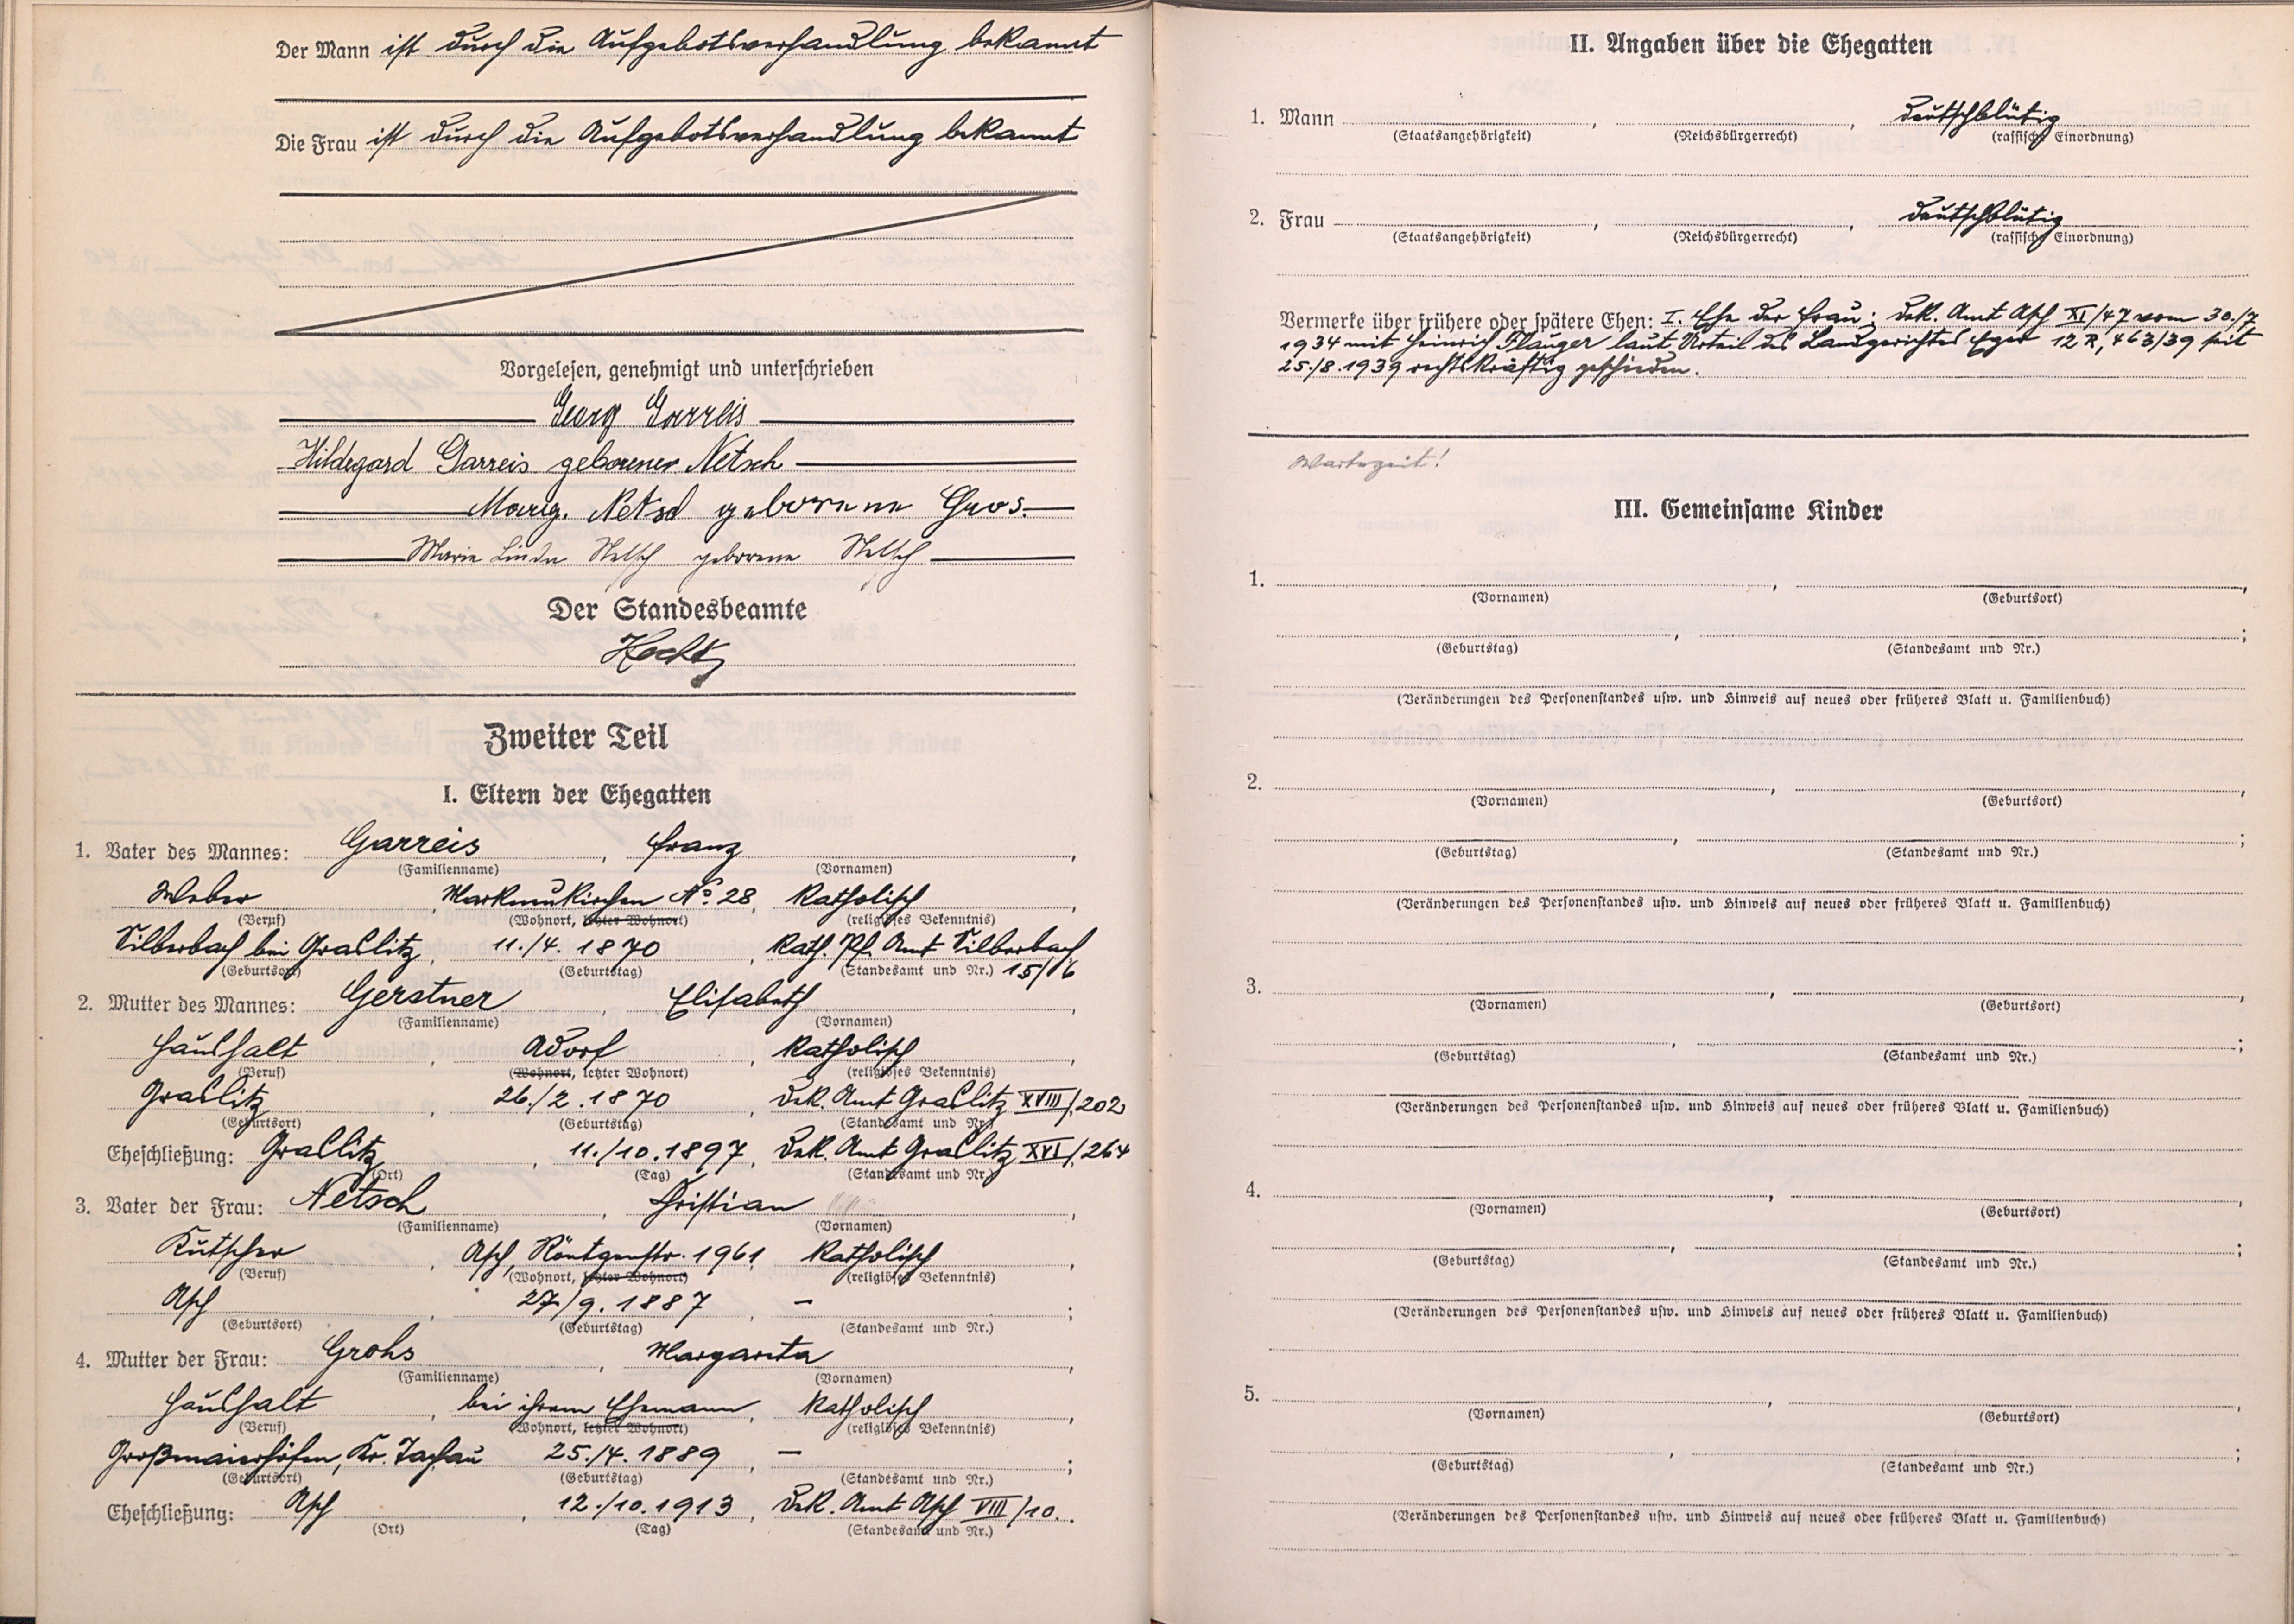 Der Mann ist durch die Aufgebotsverhandlung bekannt
Die Frau ist durch die Aufgebotsverhandlung bekannt
Vorgelesen, genehmigt und unterschrieben
Georg Garreis
Hildegard Garreis geborener Netsch
Marg. Netsch geborene Gros.
Marie Linda Netsch geborene Netsch
Der Standesbeamte
Zweiter Teil
I. Eltern der Ehegatten
1. Vater des Mannes: Garreis, Franz,
(Familienname) (Vornamen)
Weber, Markneukirchen No. 28, katholisch,
(Beruf) (Wohnort, letzter Wohnort) (religiöses Bekenntnis)
Silberbach bei Graslitz, 11./4. 1870, Kath. Pf. Amt Silberbach
(Geburtsort) (Geburtstag) (Standesamt und Nr.) 15/16
2. Mutter des Mannes: Gerstner, Elisabeth,
(Familienname) (Vornamen)
Haushalt, Adorf, katholisch,
(Beruf) (Wohnort, letzter Wohnort) (religiöses Bekenntnis)
Graslitz, 26./2. 1870, Dek. Amt Graslitz XVIII/202
(Geburtsort) (Geburtstag) (Standesamt und Nr.)
Eheschließung: Graslitz, 11./10. 1897, Dek. Amt Graslitz XVI/264
(Ort) (Tag) (Standesamt und Nr.)
3. Vater der Frau: Netsch, Christian,
(Familienname) (Vornamen)
Kutscher, Asch, Röntgenstr. 1961, katholisch,
(Beruf) (Wohnort, letzter Wohnort) (religiöses Bekenntnis)
Asch, 27./9. 1887, – ;
(Geburtsort) (Geburtstag) (Standesamt und Nr.)
4. Mutter der Frau: Grohs, Margareta,
(Familienname) (Vornamen)
Haushalt, bei ihrem Ehemann, katholisch,
(Beruf) (Wohnort, letzter Wohnort) (religiöses Bekenntnis)
Großmaierhöfen, Kr. Tachau 25./4. 1889, – ;
(Geburtsort) (Geburtstag) (Standesamt und Nr.)
Eheschließung: Asch, 12./10. 1913, Dek. Amt Asch VIII/10.
(Ort) (Tag) (Standesamt und Nr.)
II. Angaben über die Ehegatten
1. Mann , , deutschblütig
(Staatsangehörigkeit) (Reichsbürgerrecht) (rassische Einordnung)
2. Frau , , deutschblütig
(Staatsangehörigkeit) (Reichsbürgerrecht) (rassische Einordnung)
Vermerke über frühere oder spätere Ehen: I. Ehe der Frau: Dek. Amt Asch XI/47 vom 30./7
1934 mit Heinrich Plauger laut Urteil des Landgerichtes Eger 12 R, 463/39 seit
25./8. 1939 rechtskräftig geschieden.
Wartezeit!
III. Gemeinsame Kinder
1. , ,
(Vornamen) (Geburtsort)
, ;
(Geburtstag) (Standesamt und Nr.)
(Veränderungen des Personenstandes usw. und Hinweis auf neues oder früheres Blatt u. Familienbuch)
2. , ,
(Vornamen) (Geburtsort)
, ;
(Geburtstag) (Standesamt und Nr.)
(Veränderungen des Personenstandes usw. und Hinweis auf neues oder früheres Blatt u. Familienbuch)
3. , ,
(Vornamen) (Geburtsort)
, ;
(Geburtstag) (Standesamt und Nr.)
(Veränderungen des Personenstandes usw. und Hinweis auf neues oder früheres Blatt u. Familienbuch)
4. , ,
(Vornamen) (Geburtsort)
, ;
(Geburtstag) (Standesamt und Nr.)
(Veränderungen des Personenstandes usw. und Hinweis auf neues oder früheres Blatt u. Familienbuch)
5. , ,
(Vornamen) (Geburtsort)
, ;
(Geburtstag) (Standesamt und Nr.)
(Veränderungen des Personenstandes usw. und Hinweis auf neues oder früheres Blatt u. Familienbuch)